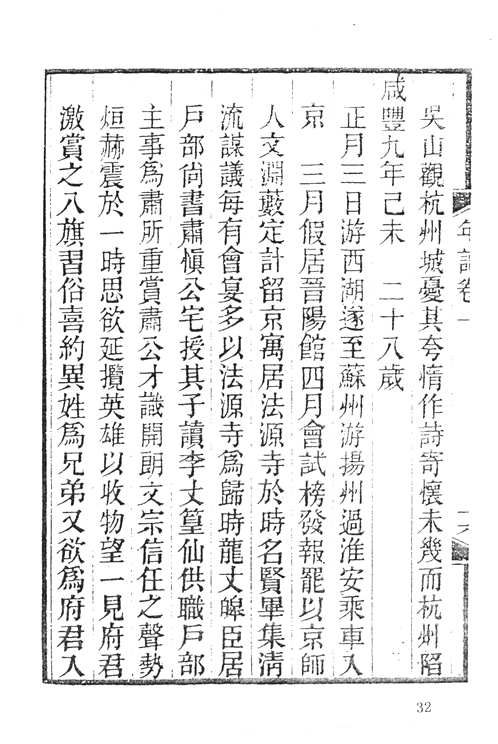 年譜卷一
吳山觀杭州城憂其夸惰作詩寄懷未幾而杭州陷
咸豐九年己未　二十八歲
正月三日游西湖遂至蘇州游揚州過淮安乘車入
京　三月假居晉陽館四月會試榜發報罷以京師
人文淵藪定計留京寓居法源寺於時名賢畢集清
流謀議每有會宴多以法源寺爲歸時龍丈皞臣居
戸部尙書肅愼公宅授其子讀李丈篁仙供職戸部
主事爲肅所重賞肅公才識開朗文宗信任之聲勢
烜赫震於一時思欲延攬英雄以收物望一見府君
激賞之八旗習俗喜約異姓爲兄弟又欲爲府君入
32